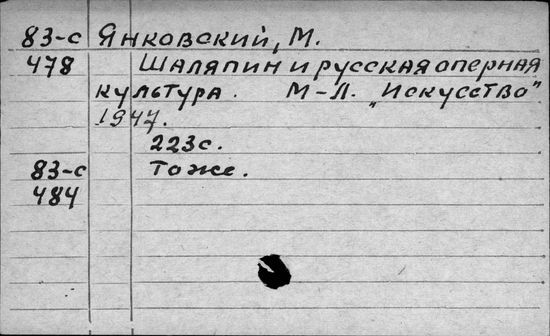 83-с Янковский, М.
478 Шаляпин и русская оперная
культура. М-Л. „Искусство"
1947.
223с.
83-с Тоже.
484